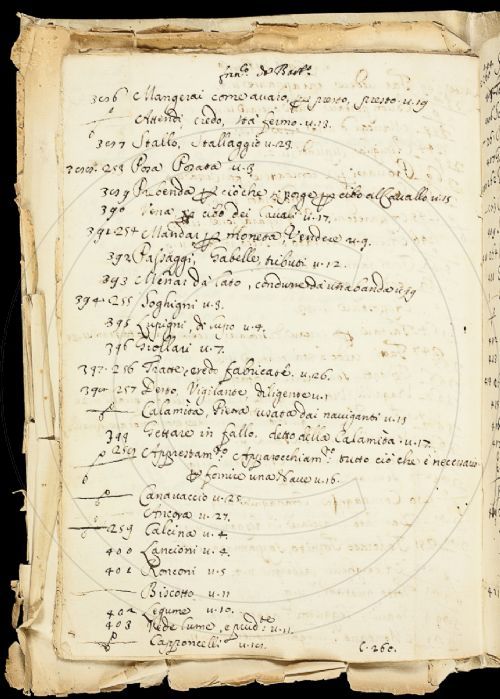 fran.º da Barb.º
386 Mangerai come avaro, pp presto, presto v. 19
Attendi credo, sta fermo. v. 13.
387 Stallo, Stallaggio v. 23.
388 - 253 Pora Porata v. 3
389 Provenda pp ciò che si porge pp cibo all Cavallo v. 15
390 Vena pp cibo dei Cavali v. 17.
391 - 254 Mandar pp moneta Vendere v. 9.
392 Passaggi, Gabelle, tributi v. 12.
393 Menar da lato, condurre da una banda v. 19
394 - 255 Soghigni v. 3.
395 Lupigni, di lupo v. 4.
396 Giollari v. 7.
397 - 256 Tratte, credo fabricate. v. 26.
398 - 257 Desto, Vigilante, diligente v. 1
Calamita, Pietra usata dai naviganti v. 15
399 Gettare in fallo, detto della Calamita. v. 17
258 Apprestam.to Apparecchiam.to tutto ciò che è necessario
pp fornir una Nave v. 16.
Canavaccio v. 25.
Ancora v. 27.
259 Calcina v. 4.
400 Lancioni v. 4.
401 Ronconi v. 5
Biscotto v. 11
402 Legume v. 10.
403 v. 11.
Capponcelli
C. 260.